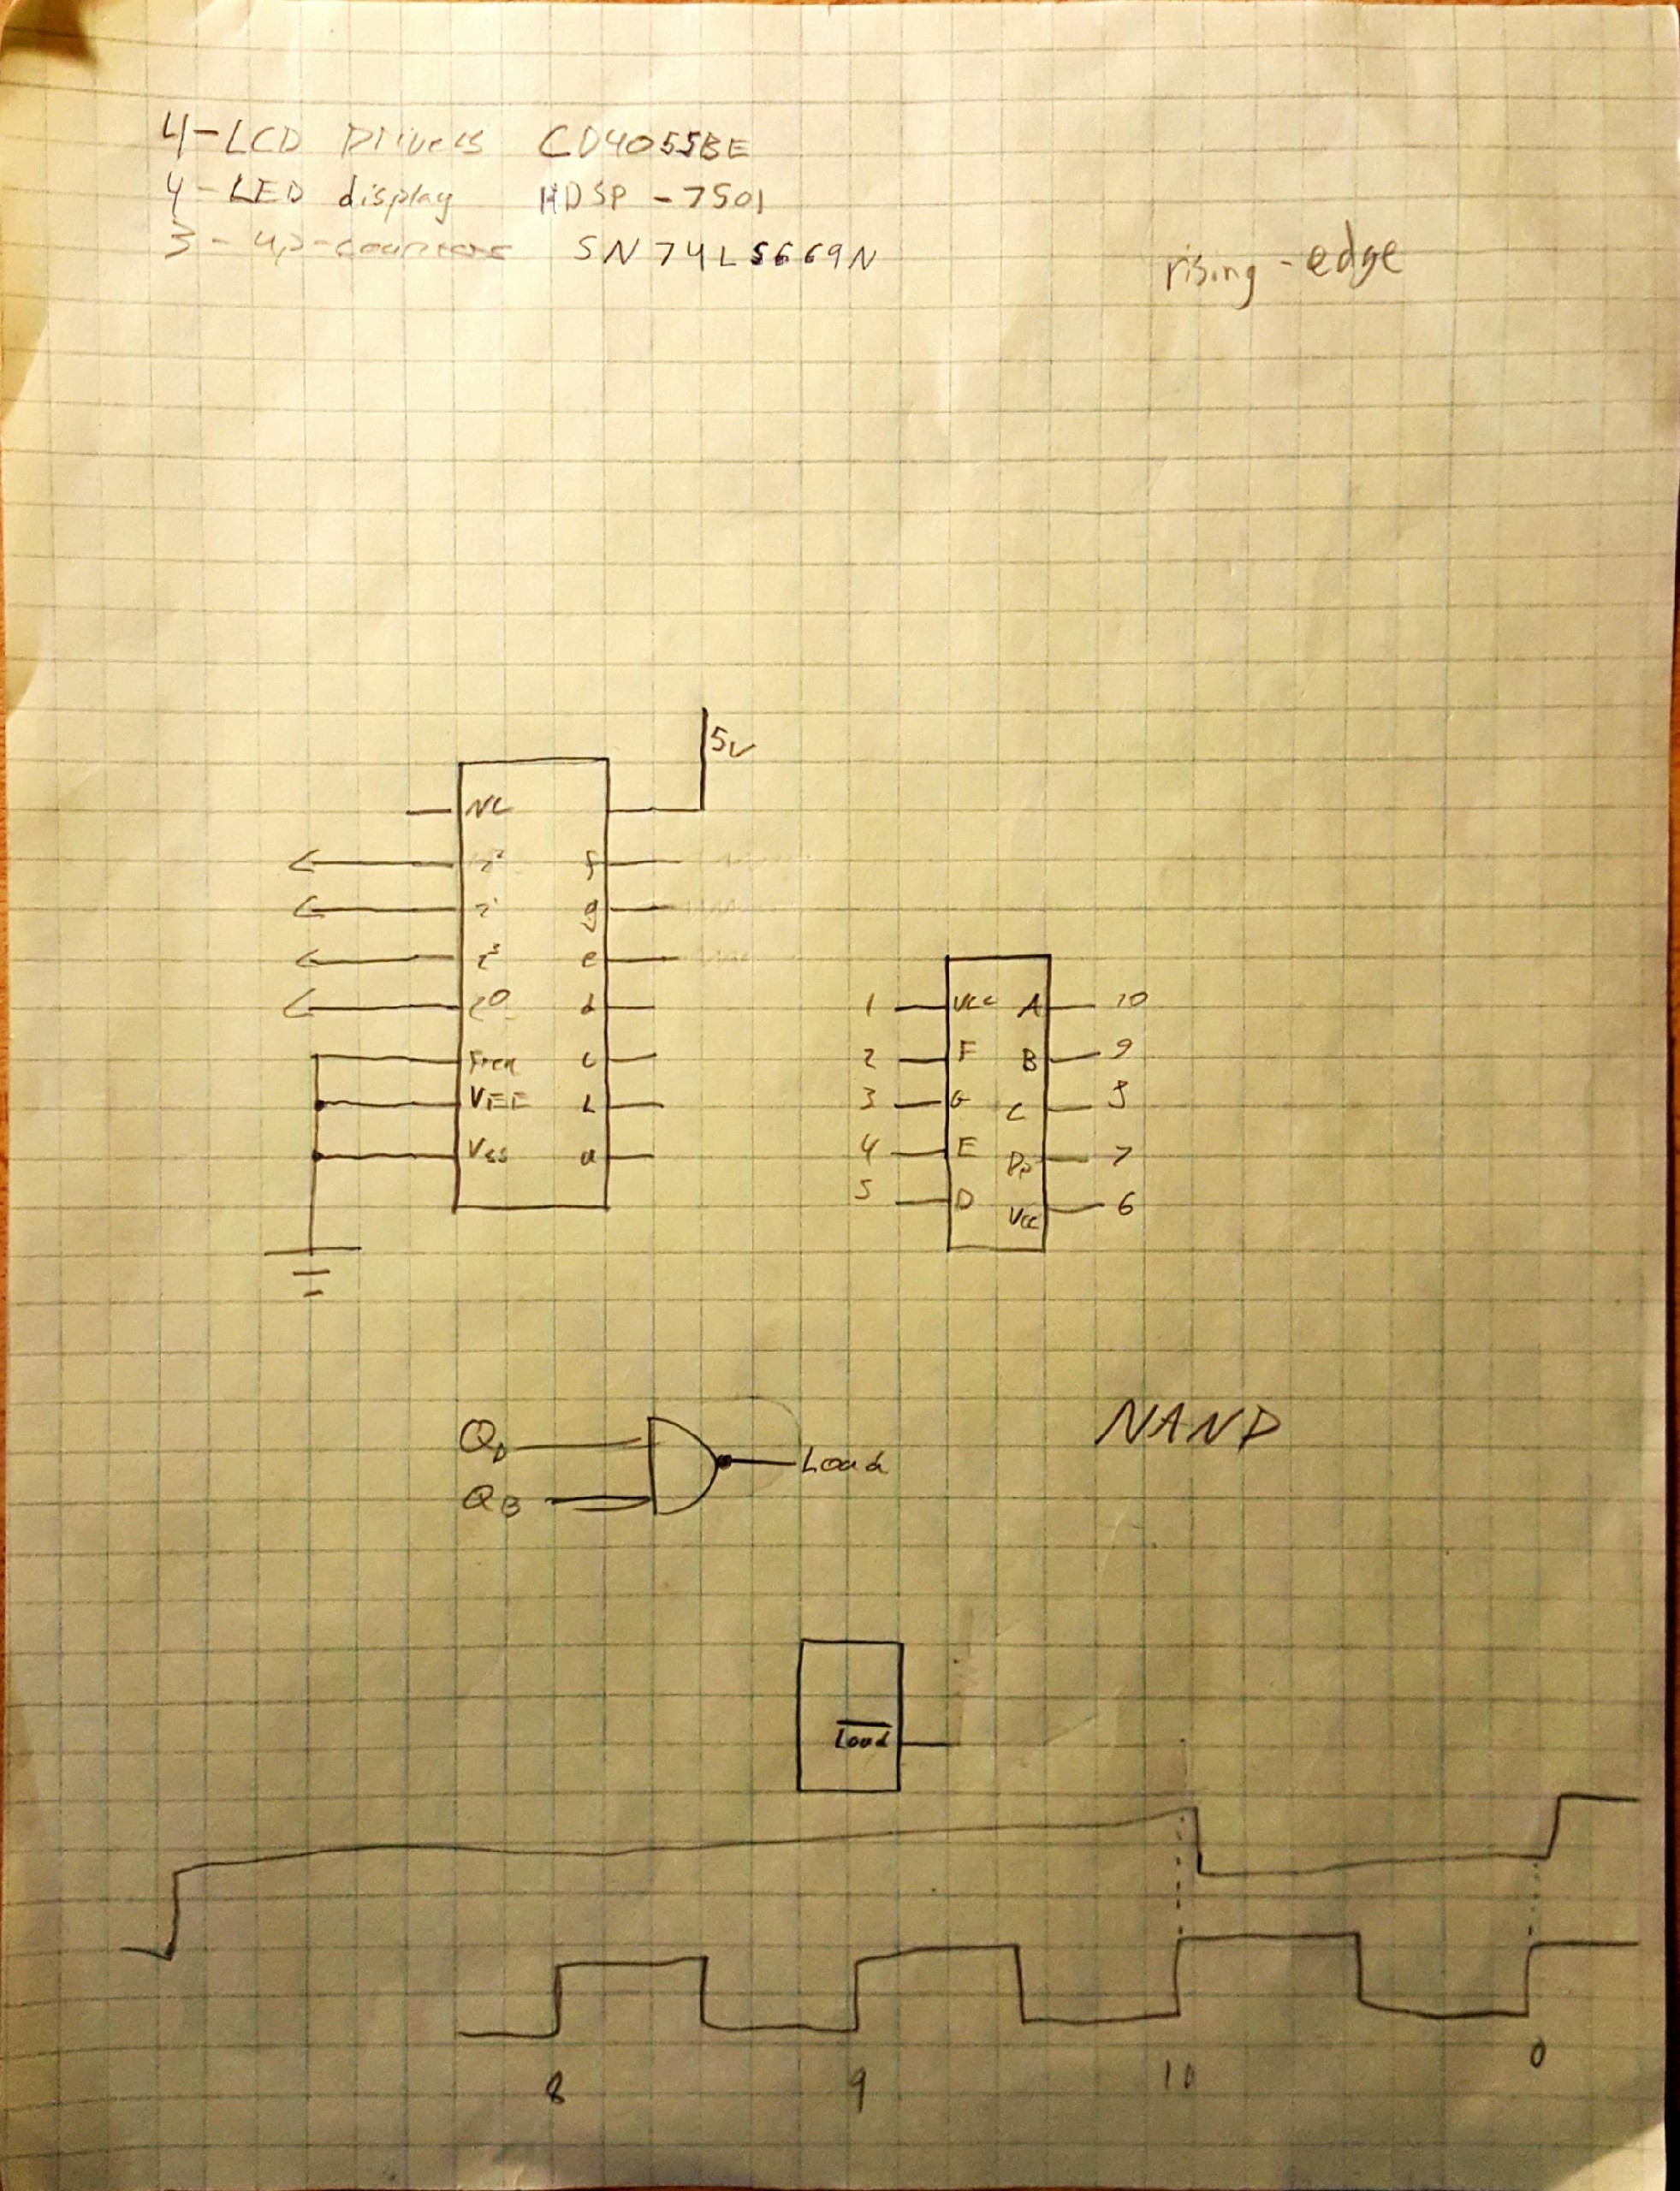 4-LCD Drivers CD4055BE
4-LED display HDSP-7501
3- up-counters SN74LS669N
rising-edge
5V
NC
2² f
2¹ g
2³ e
2⁰ d
Freq c
VEE b
VSS a
1 VCC A 10
2 F B 9
3 G C 8
4 E DP 7
5 D VCC 6
QD
QB
Load
NAND
Load
8 9 10 0